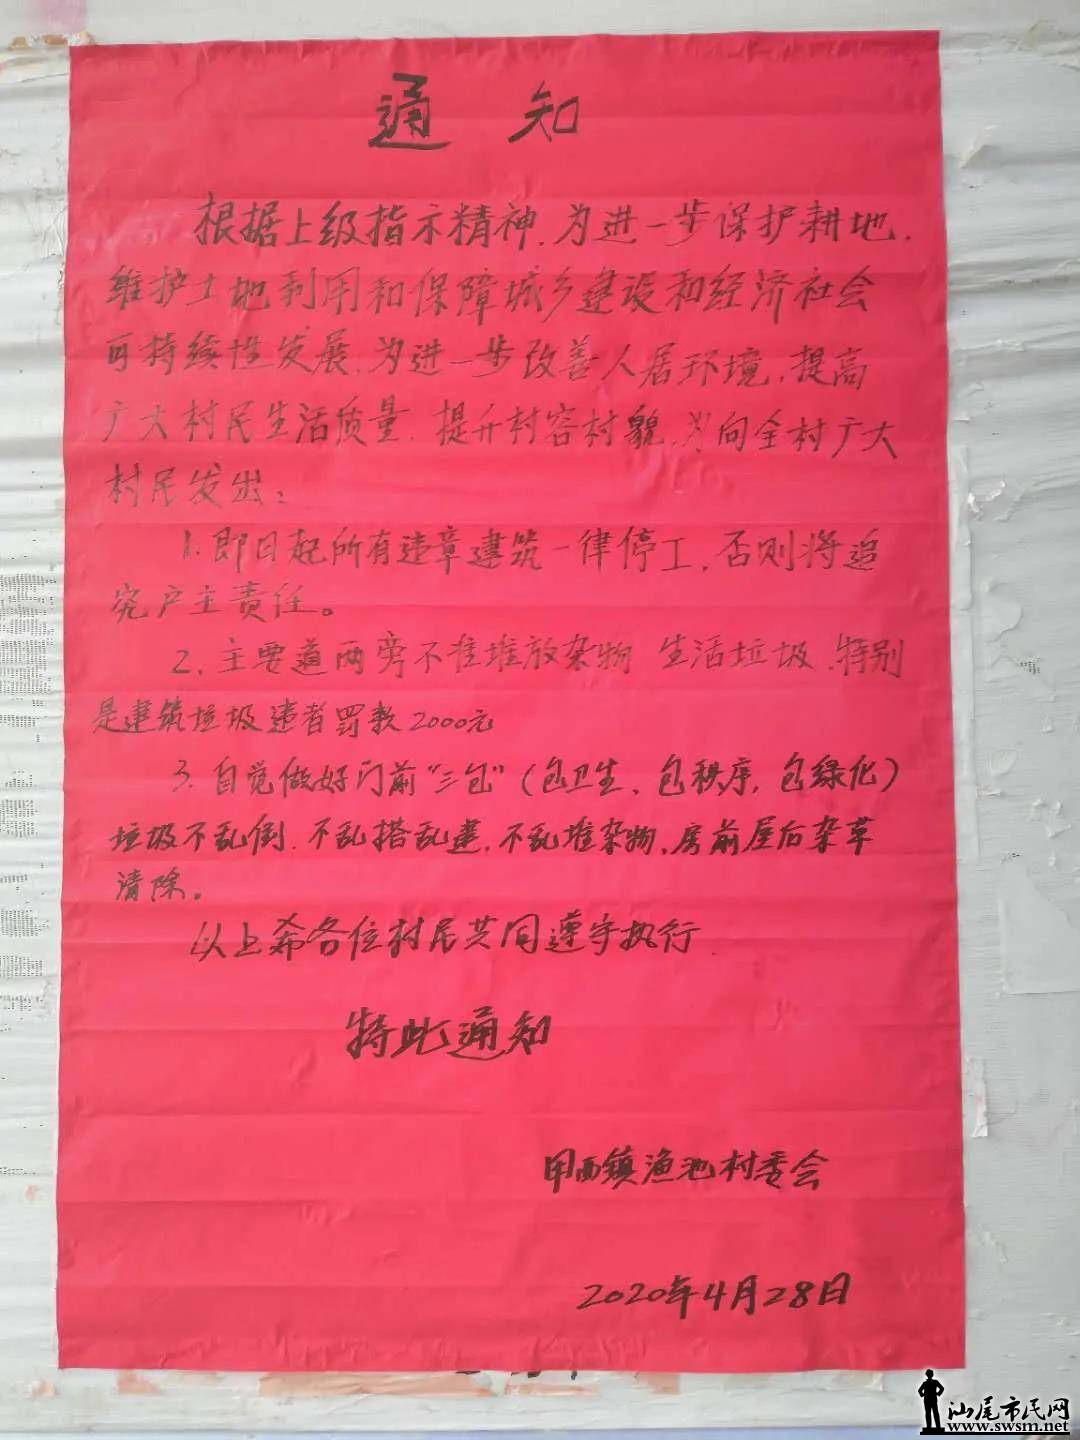 通知
根据上级指示精神，为进一步保护耕地，
维护土地利用和保障城乡建设和经济社会
可持续性发展，为进一步改善人居环境，提高
广大村民生活质量，提升村容村貌，为向全村广大
村民发出：
1.即日起所有违章建筑一律停工，否则将追
究户主责任。
2、主要道两旁不准堆放杂物 生活垃圾，特别
是建筑垃圾违者罚款2000元
3、自觉做好门前“三包”（包卫生、包秩序，包绿化）
垃圾不乱倒，不乱搭乱建，不乱堆杂物、房前屋后杂草
清除。
以上希各位村民共同遵守执行．
特此通知
甲西镇渔池村委会
2020年4月28日
汕尾市民网
www.swsm.net